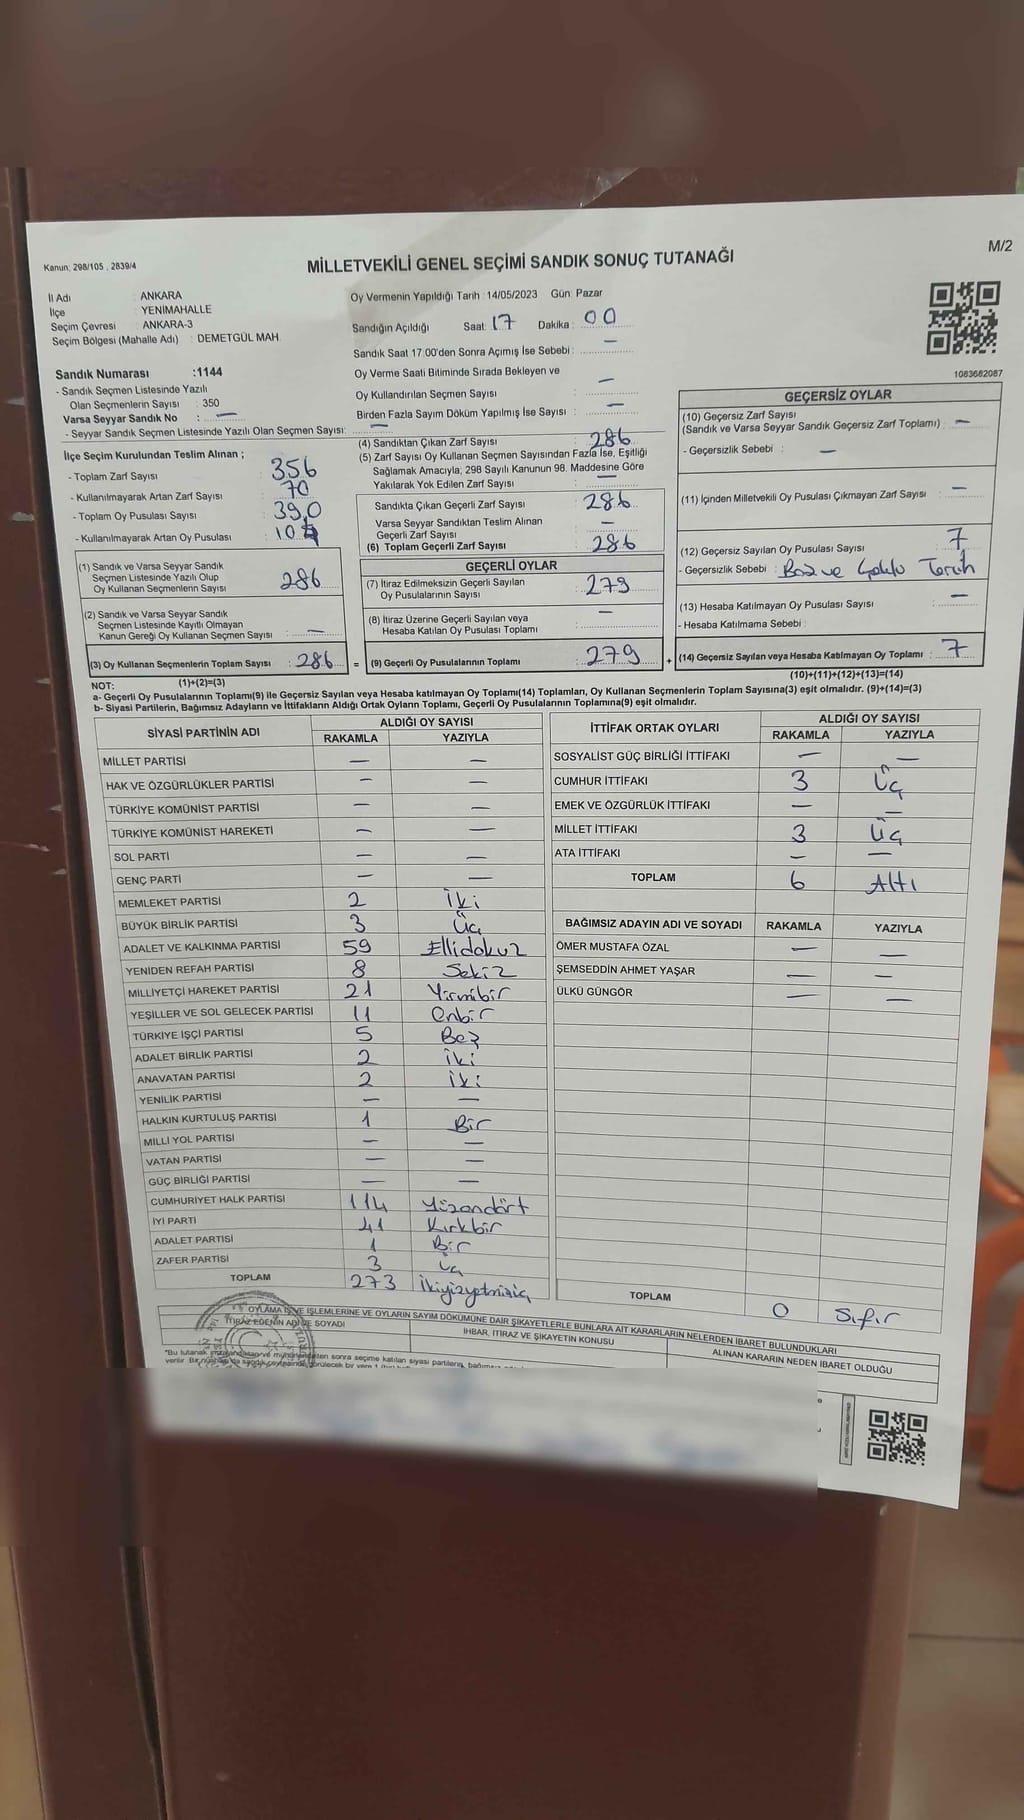 M/2
Kanun: 298/105 , 2839/4
MİLLETVEKİLİ GENEL SEÇİMİ SANDIK SONUÇ TUTANAĞI
İl Adı : ANKARA
İlçe : YENİMAHALLE
Seçim Çevresi : ANKARA-3
Seçim Bölgesi (Mahalle Adı) : DEMETGÜL MAH.
Oy Vermenin Yapıldığı Tarih : 14/05/2023 Gün: Pazar
Sandığın Açıldığı Saat: 17 Dakika : 00
Sandık Saat 17:00'den Sonra Açımış İse Sebebi : —
Oy Verme Saati Bitiminde Sırada Bekleyen ve
Oy Kullandırılan Seçmen Sayısı : —
Birden Fazla Sayım Döküm Yapılmış İse Sayısı : —
1083682087
Sandık Numarası :1144
- Sandık Seçmen Listesinde Yazılı
Olan Seçmenlerin Sayısı : 350
Varsa Seyyar Sandık No : —
- Seyyar Sandık Seçmen Listesinde Yazılı Olan Seçmen Sayısı: —
İlçe Seçim Kurulundan Teslim Alınan ;
- Toplam Zarf Sayısı : 356
- Kullanılmayarak Artan Zarf Sayısı : 70
- Toplam Oy Pusulası Sayısı : 390
- Kullanılmayarak Artan Oy Pusulası : 104
(1) Sandık ve Varsa Seyyar Sandık
Seçmen Listesinde Yazılı Olup
Oy Kullanan Seçmenlerin Sayısı : 286
(2) Sandık ve Varsa Seyyar Sandık
Seçmen Listesinde Kayıtlı Olmayan
Kanun Gereği Oy Kullanan Seçmen Sayısı : —
(3) Oy Kullanan Seçmenlerin Toplam Sayısı : 286
(1)+(2)=(3)
(4) Sandıktan Çıkan Zarf Sayısı : 286
(5) Zarf Sayısı Oy Kullanan Seçmen Sayısından Fazla İse, Eşitliği
Sağlamak Amacıyla; 298 Sayılı Kanunun 98. Maddesine Göre
Yakılarak Yok Edilen Zarf Sayısı : —
Sandıkta Çıkan Geçerli Zarf Sayısı : 286
Varsa Seyyar Sandıktan Teslim Alınan
Geçerli Zarf Sayısı : —
(6) Toplam Geçerli Zarf Sayısı : 286
GEÇERLİ OYLAR
(7) İtiraz Edilmeksizin Geçerli Sayılan
Oy Pusulalarının Sayısı : 279
(8) İtiraz Üzerine Geçerli Sayılan veya
Hesaba Katılan Oy Pusulası Toplamı : —
= (9) Geçerli Oy Pusulalarının Toplamı : 279
GEÇERSİZ OYLAR
(10) Geçersiz Zarf Sayısı
(Sandık ve Varsa Seyyar Sandık Geçersiz Zarf Toplamı) : —
- Geçersizlik Sebebi : —
(11) İçinden Milletvekili Oy Pusulası Çıkmayan Zarf Sayısı : —
(12) Geçersiz Sayılan Oy Pusulası Sayısı : 7
- Geçersizlik Sebebi : Boş ve Çoklu Tercih
(13) Hesaba Katılmayan Oy Pusulası Sayısı : —
- Hesaba Katılmama Sebebi :
+ (14) Geçersiz Sayılan veya Hesaba Katılmayan Oy Toplamı : 7
(10)+(11)+(12)+(13)=(14)
NOT:
a- Geçerli Oy Pusulalarının Toplamı(9) ile Geçersiz Sayılan veya Hesaba katılmayan Oy Toplamı(14) Toplamları, Oy Kullanan Seçmenlerin Toplam Sayısına(3) eşit olmalıdır. (9)+(14)=(3)
b- Siyasi Partilerin, Bağımsız Adayların ve İttifakların Aldığı Ortak Oyların Toplamı, Geçerli Oy Pusulalarının Toplamına(9) eşit olmalıdır.
SİYASİ PARTİNİN ADI ALDIĞI OY SAYISI
RAKAMLA YAZIYLA
MİLLET PARTİSİ — —
HAK VE ÖZGÜRLÜKLER PARTİSİ — —
TÜRKİYE KOMÜNİST PARTİSİ — —
TÜRKİYE KOMÜNİST HAREKETİ — —
SOL PARTİ — —
GENÇ PARTİ — —
MEMLEKET PARTİSİ 2 İki
BÜYÜK BİRLİK PARTİSİ 3 Üç
ADALET VE KALKINMA PARTİSİ 59 Ellidokuz
YENİDEN REFAH PARTİSİ 8 Sekiz
MİLLİYETÇİ HAREKET PARTİSİ 21 Yirmibir
YEŞİLLER VE SOL GELECEK PARTİSİ 11 Onbir
TÜRKİYE İŞÇİ PARTİSİ 5 Beş
ADALET BİRLİK PARTİSİ 2 iki
ANAVATAN PARTİSİ 2 iki
YENİLİK PARTİSİ — —
HALKIN KURTULUŞ PARTİSİ 1 Bir
MİLLİ YOL PARTİSİ — —
VATAN PARTİSİ — —
GÜÇ BİRLİĞİ PARTİSİ — —
CUMHURİYET HALK PARTİSİ 114 Yüzondört
İYİ PARTİ 41 Kırkbir
ADALET PARTİSİ 1 Bir
ZAFER PARTİSİ 3 Üç
TOPLAM 273 İkiyüzyetmişüç
İTTİFAK ORTAK OYLARI ALDIĞI OY SAYISI
RAKAMLA YAZIYLA
SOSYALİST GÜÇ BİRLİĞİ İTTİFAKI — —
CUMHUR İTTİFAKI 3 Üç
EMEK VE ÖZGÜRLÜK İTTİFAKI — —
MİLLET İTTİFAKI 3 Üç
ATA İTTİFAKI — —
TOPLAM 6 Altı
BAĞIMSIZ ADAYIN ADI VE SOYADI RAKAMLA YAZIYLA
ÖMER MUSTAFA ÖZAL — —
ŞEMSEDDİN AHMET YAŞAR — —
ÜLKÜ GÜNGÖR — —
TOPLAM 0 Sıfır
OYLAMA İŞ VE İŞLEMLERİNE VE OYLARIN SAYIM DÖKÜMÜNE DAİR ŞİKAYETLERLE BUNLARA AİT KARARLARIN NELERDEN İBARET BULUNDUKLARI
İTİRAZ EDENİN ADI VE SOYADI İHBAR, İTİRAZ VE ŞİKAYETİN KONUSU ALINAN KARARIN NEDEN İBARET OLDUĞU